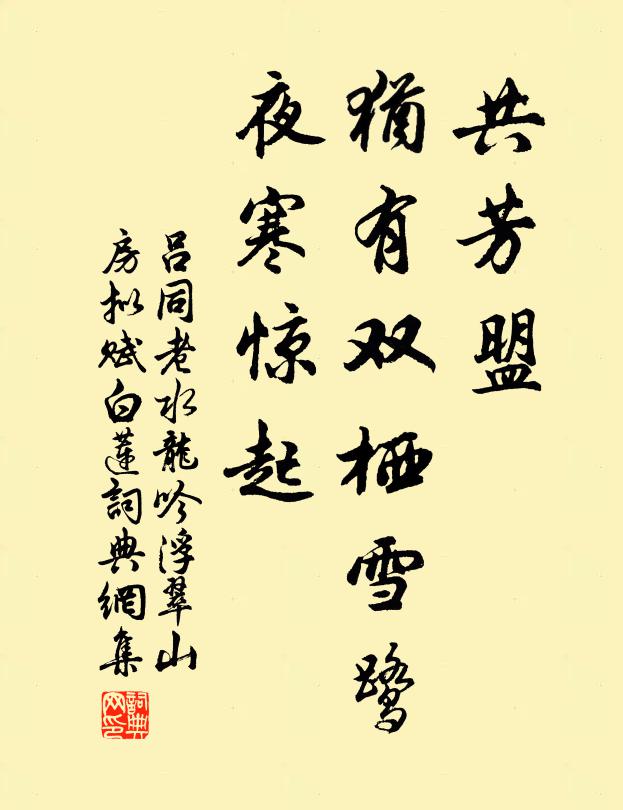 共芳盟
猶有双栖雪鹭
夜寒惊起
吕同老水龍吟浮翠山
房拟赋白蓮詞典網集
詞典
网印